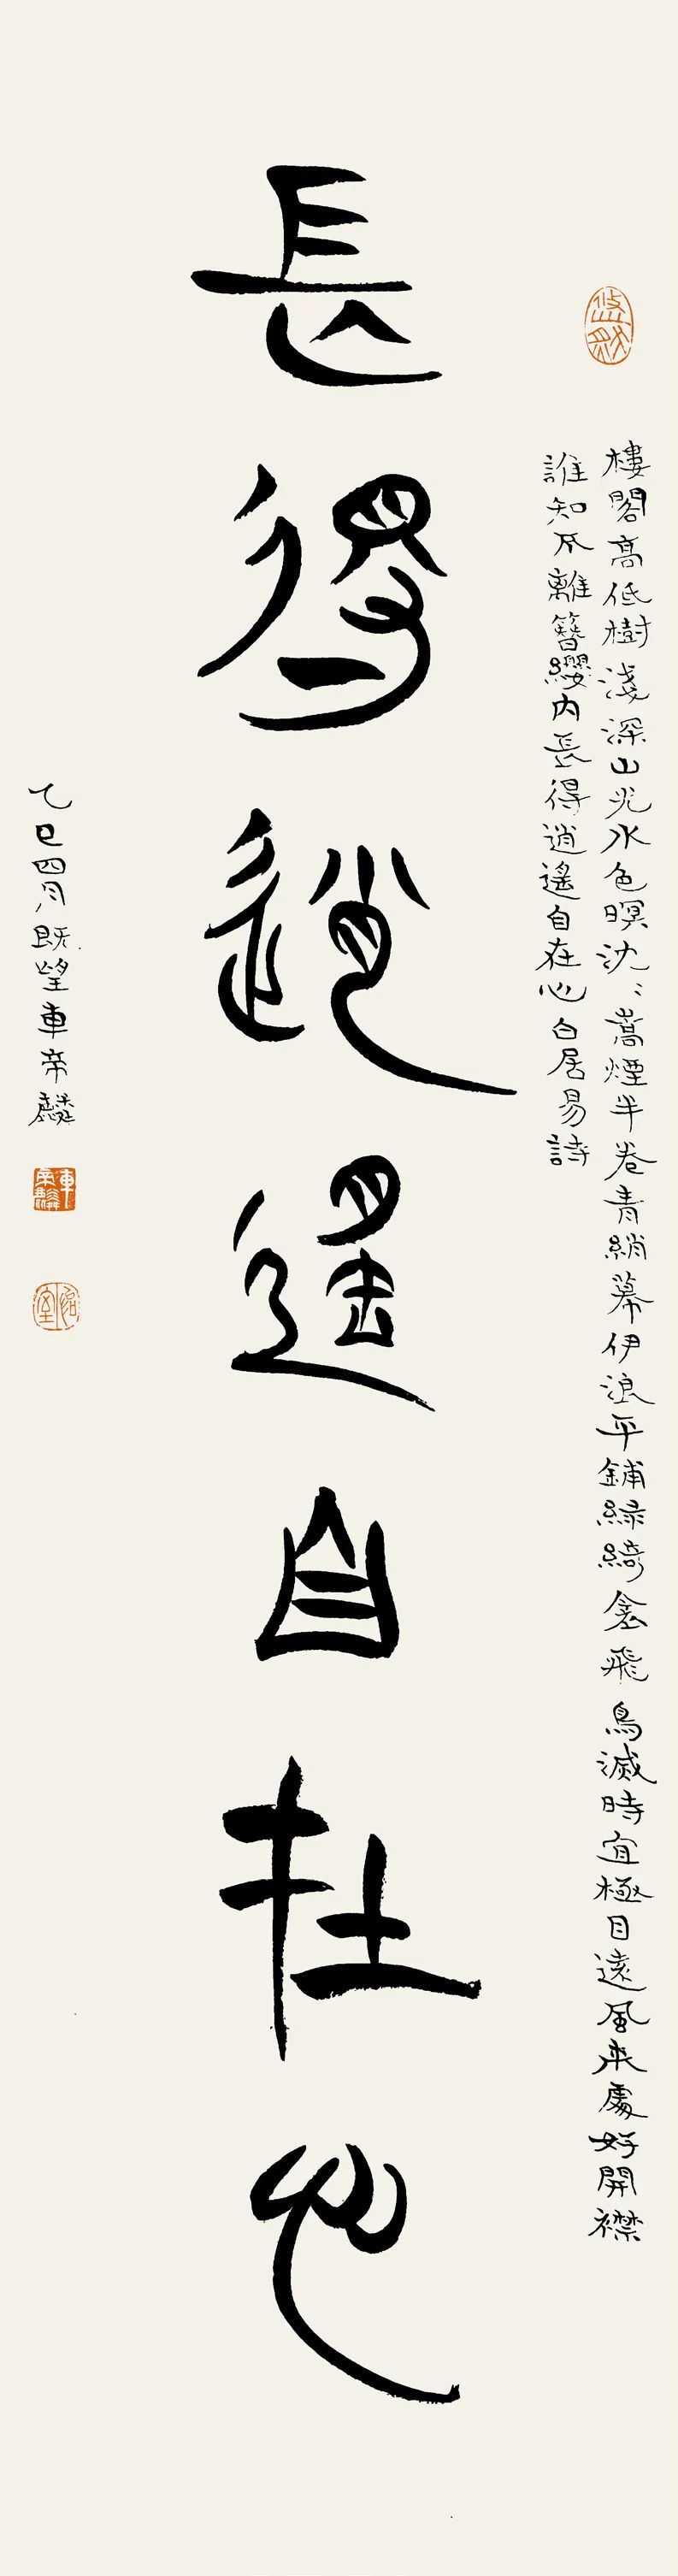 悠然
樓閣高低樹淺深山光水色暝沈〻嵩煙半卷青綃幕伊浪平鋪綠綺衾飛鳥滅時宜極目遠風來處好開襟
誰知不離簪纓內長得逍遙自在心白居易詩
長得逍遙自在心
乙巳四月既望車帝麟
車帝麟